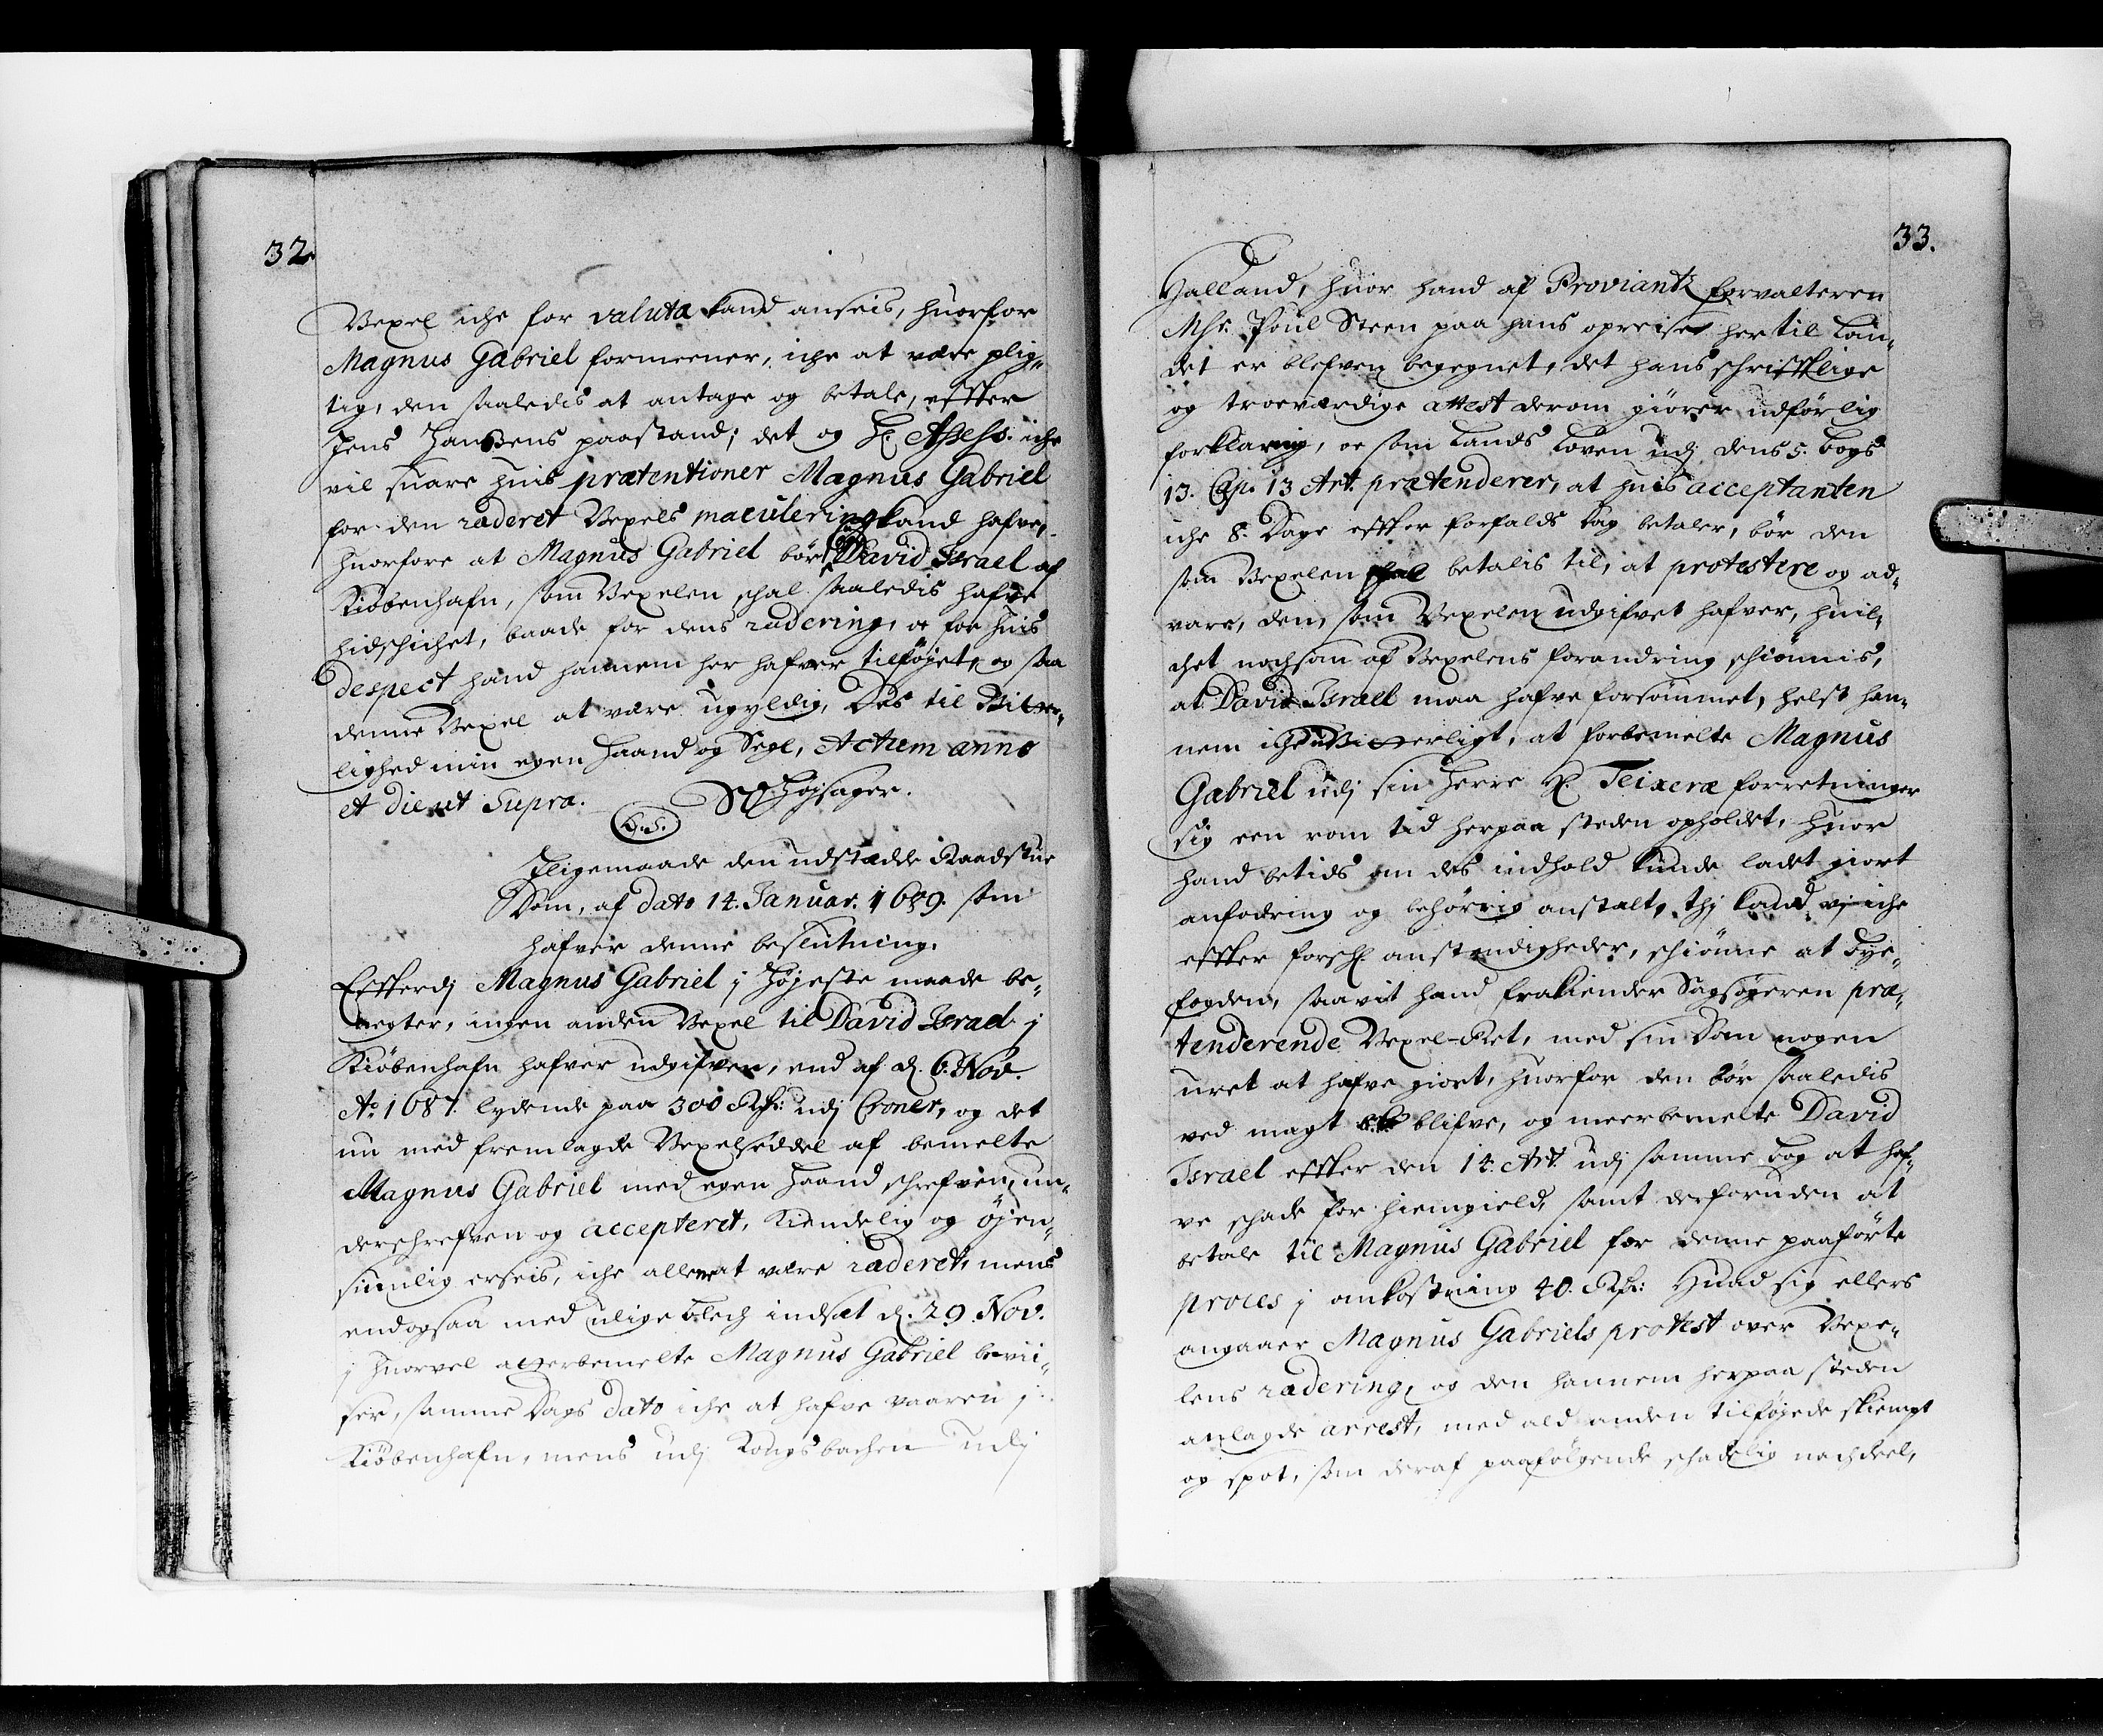 32.
Vexel iche for valuta kand anseis, huorfor
Magnus Gabriel formeener, iche at være plig„
tig, den saaledis at antage og betale, effter
Jens Hansens paastand; det og H. Assess. iche
vil suare huis prætentioner Magnus Gabriel
for den raderet Vexels maculering kand hafve,
huorfore at Magnus Gabriel bør David Israel af
Kiøbenhafn, som Vexelen schal saaledis hafve
hidschichet, baade for dens radering, oc for huis
despect hand hannem her hafver tilføjet, og saa
denne Vexel at være ugyldig, Des til Vitter„
lighed min egen Haand og Segl, Actum anno
et die ut Supra. Højsager.
L.S.
Iligemaade den udstædde Raadstue
Dom, af dato 14. Januar. 1689. som
hafver denne beslutning.
Effterdj Magnus Gabriel j høyeste maade be„
negter, ingen anden Vexel til David Israel j
Kiøbenhafn hafver udgifven, end af d. 6. Nov.
Ao. 1687. lydende paa 300 Rdr: udj Croner, og det
nu med fremlagde Vexelseddel af bemelte
Magnus Gabriel med egen Haand schrefven, un„
derschrefven og accepteret, kiendelig og øjen„
siunlig erseis, iche allene at være raderet, mens
endogsaa med ulige blech indsat d. 29. Nov.
j huorvel atterbemelte Magnus Gabriel bevii„
ser, samme Dags dato iche at hafve vaaren j
Kiøbenhafn, mens udj Kongsbachen udj
33.
Halland, huor hand af Proviantz forvalteren
Mhr. Poul Steen paa hans opreise her til Lan„
det er blefven begegnet, det hans schrifftlige
og troeværdige attest derom giører udførlig
forklaring, oc som Lands Loven udj dens 5. bogs
13. Cap. 13 Art. prætenderer, at huis acceptanten
iche 8. Dage effter forfalds dag betaler, bør den
som Vexelen schal betalis til, at protestere og ad„
vare, den, som Vexelen udgifvet hafver, huil„
chet nochsom af Vexelens forandring schiønnis,
at David Israel maa hafve forsømmet, helst han„
nem iche uvitterligt, at forbemelte Magnus
Gabriel udj sin Herre H. Teixeræ forretninger
sig een rom tid herpaa steden opholdet, huor
hand betids om des indhold kunde ladet giort
anfodring og behørrig anstalt, thj kand vj iche
effter forschr. omstendigheder, schiønne at Bye„
fogden, saavit hand frakiender Sagsøgeren præ„
tenderende Vexel-Ret, med sin Dom nogen
uret at hafve giort, huorfor den bør saaledis
ved magt blifve, og meerbemelte David
Israel effter den 14. Art. udj samme bog at haf„
ve schade for hiemgield, samt desforuden at
betale til Magnus Gabriel for denne paaførte
proces j omkostning 40. Rdr: Huad sig ellers
angaaer Magnus Gabriels protest over Vexe„
lens radering, og den hannem herpaa steden
anlagde arrest, med ald anden tilføjede skiempt
og spot, som deraf paafølgende schadelig nachdeel,